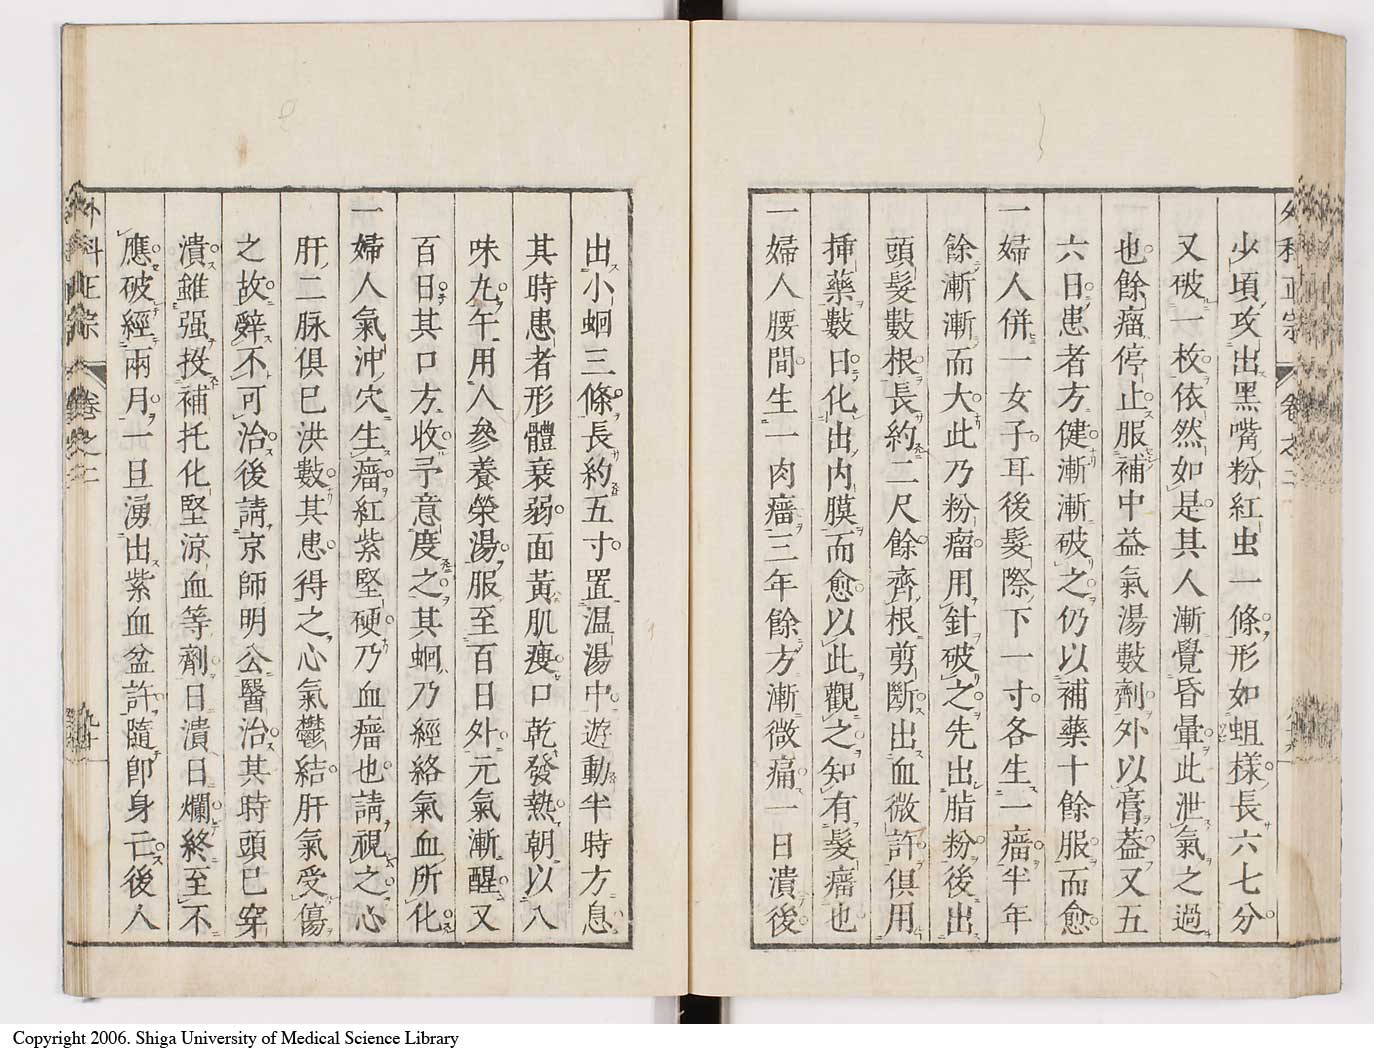 外科正宗 卷之二
少頃攻出黒嘴粉紅虫一條形如蛆樣長六七分
又破一枚依然如是其人漸覺昏暈此泄氣之過
也餘瘤停止服補中益氣湯數劑外以膏葢又五
六日患者方健漸漸破之仍以補藥十餘服而愈
一婦人併一女子耳後髮際下一寸各生一瘤半年
餘漸漸而大此乃粉瘤用針破之先出脂粉後出
頭髮數根長約二尺餘齊根剪斷出血微許俱用
揷藥數日化出内膜而愈以此觀之知有髮瘤也
一婦人腰間生一肉瘤三年餘方漸微痛一日潰後
出小蛔三條長約五寸置温湯中遊動半時方息
其時患者形體衰弱面黃肌瘦口乾發熱朝以八
味丸午用人參養榮湯服至百日外元氣漸醒又
百日其口方收予意度之其蛔乃經絡氣血所化
一婦人氣沖穴生瘤紅紫堅硬乃血瘤也請視之心
肝二脉俱已洪數其患得之心氣鬱結肝氣受傷
之故辭不可治後請京師明公醫治其時頭已穿
潰錐强投補托化堅涼血等劑日潰日爛終至不
應破經兩月一旦湧出紫血盆許隨卽身亡後人
外科正宗 卷之二
九十
Copyright 2006. Shiga University of Medical Science Library